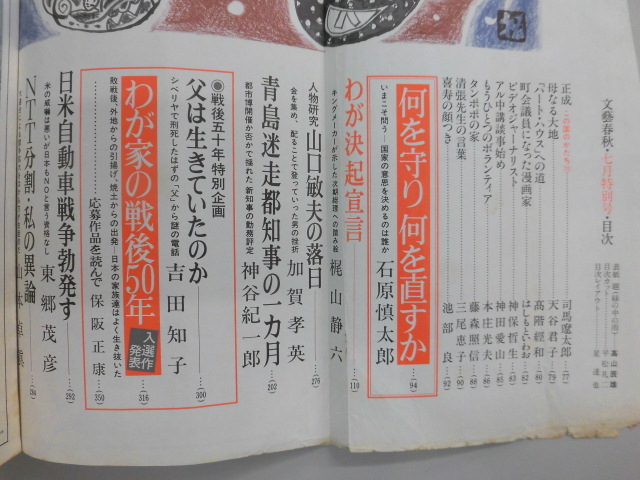 文藝春秋・七月特別号・目次
表紙 画「緑の中の街」 高山辰雄
目次カット 平松礼二
目次レイアウト 星達也
正成「この国のかたち」 司馬遼太郎 (77)
母なる大地 天谷君子 (79)
「ハート・ハウス」への道 高階經和 (80)
町会議員になった漫画家 はしもといわお (82)
ビデオジャーナリスト 神保哲生 (83)
アル中講談事始め 神田愛山 (85)
もうひとつのボランティア 本庄光夫 (86)
タンポポの家 藤森照信 (88)
清張先生の言葉 三尾恵子 (90)
喜寿の顔つき 池部良 (92)
何を守り何を直すか
いまこそ問う——国家の意思を決めるのは誰か 石原慎太郎 (94)
わが決起宣言
キングメーカーが示した次期総理への踏み絵 梶山静六 110
人物研究 山口敏夫の落日
金を集め、配ることで登っていった男の挫折 加賀孝英 276
青島迷走都知事の一カ月
都市博開催か否かで揺れた新知事の勤務評定 神谷紀一郎 202
◉戦後五十年特別企画
父は生きていたのか
シベリヤで刑死したはずの「父」から謎の電話 吉田知子 300
わが家の戦後50年 入選作発表 316
敗戦後、外地からの引揚げ、焼土からの出発——日本の家族達はよく生き抜いた
応募作品を読んで 保阪正康 350
日米自動車戦争勃発す
米の威嚇は悪いが日本もNOと言う資格なし 東郷茂彦 292
NTT分割・私の異論
284